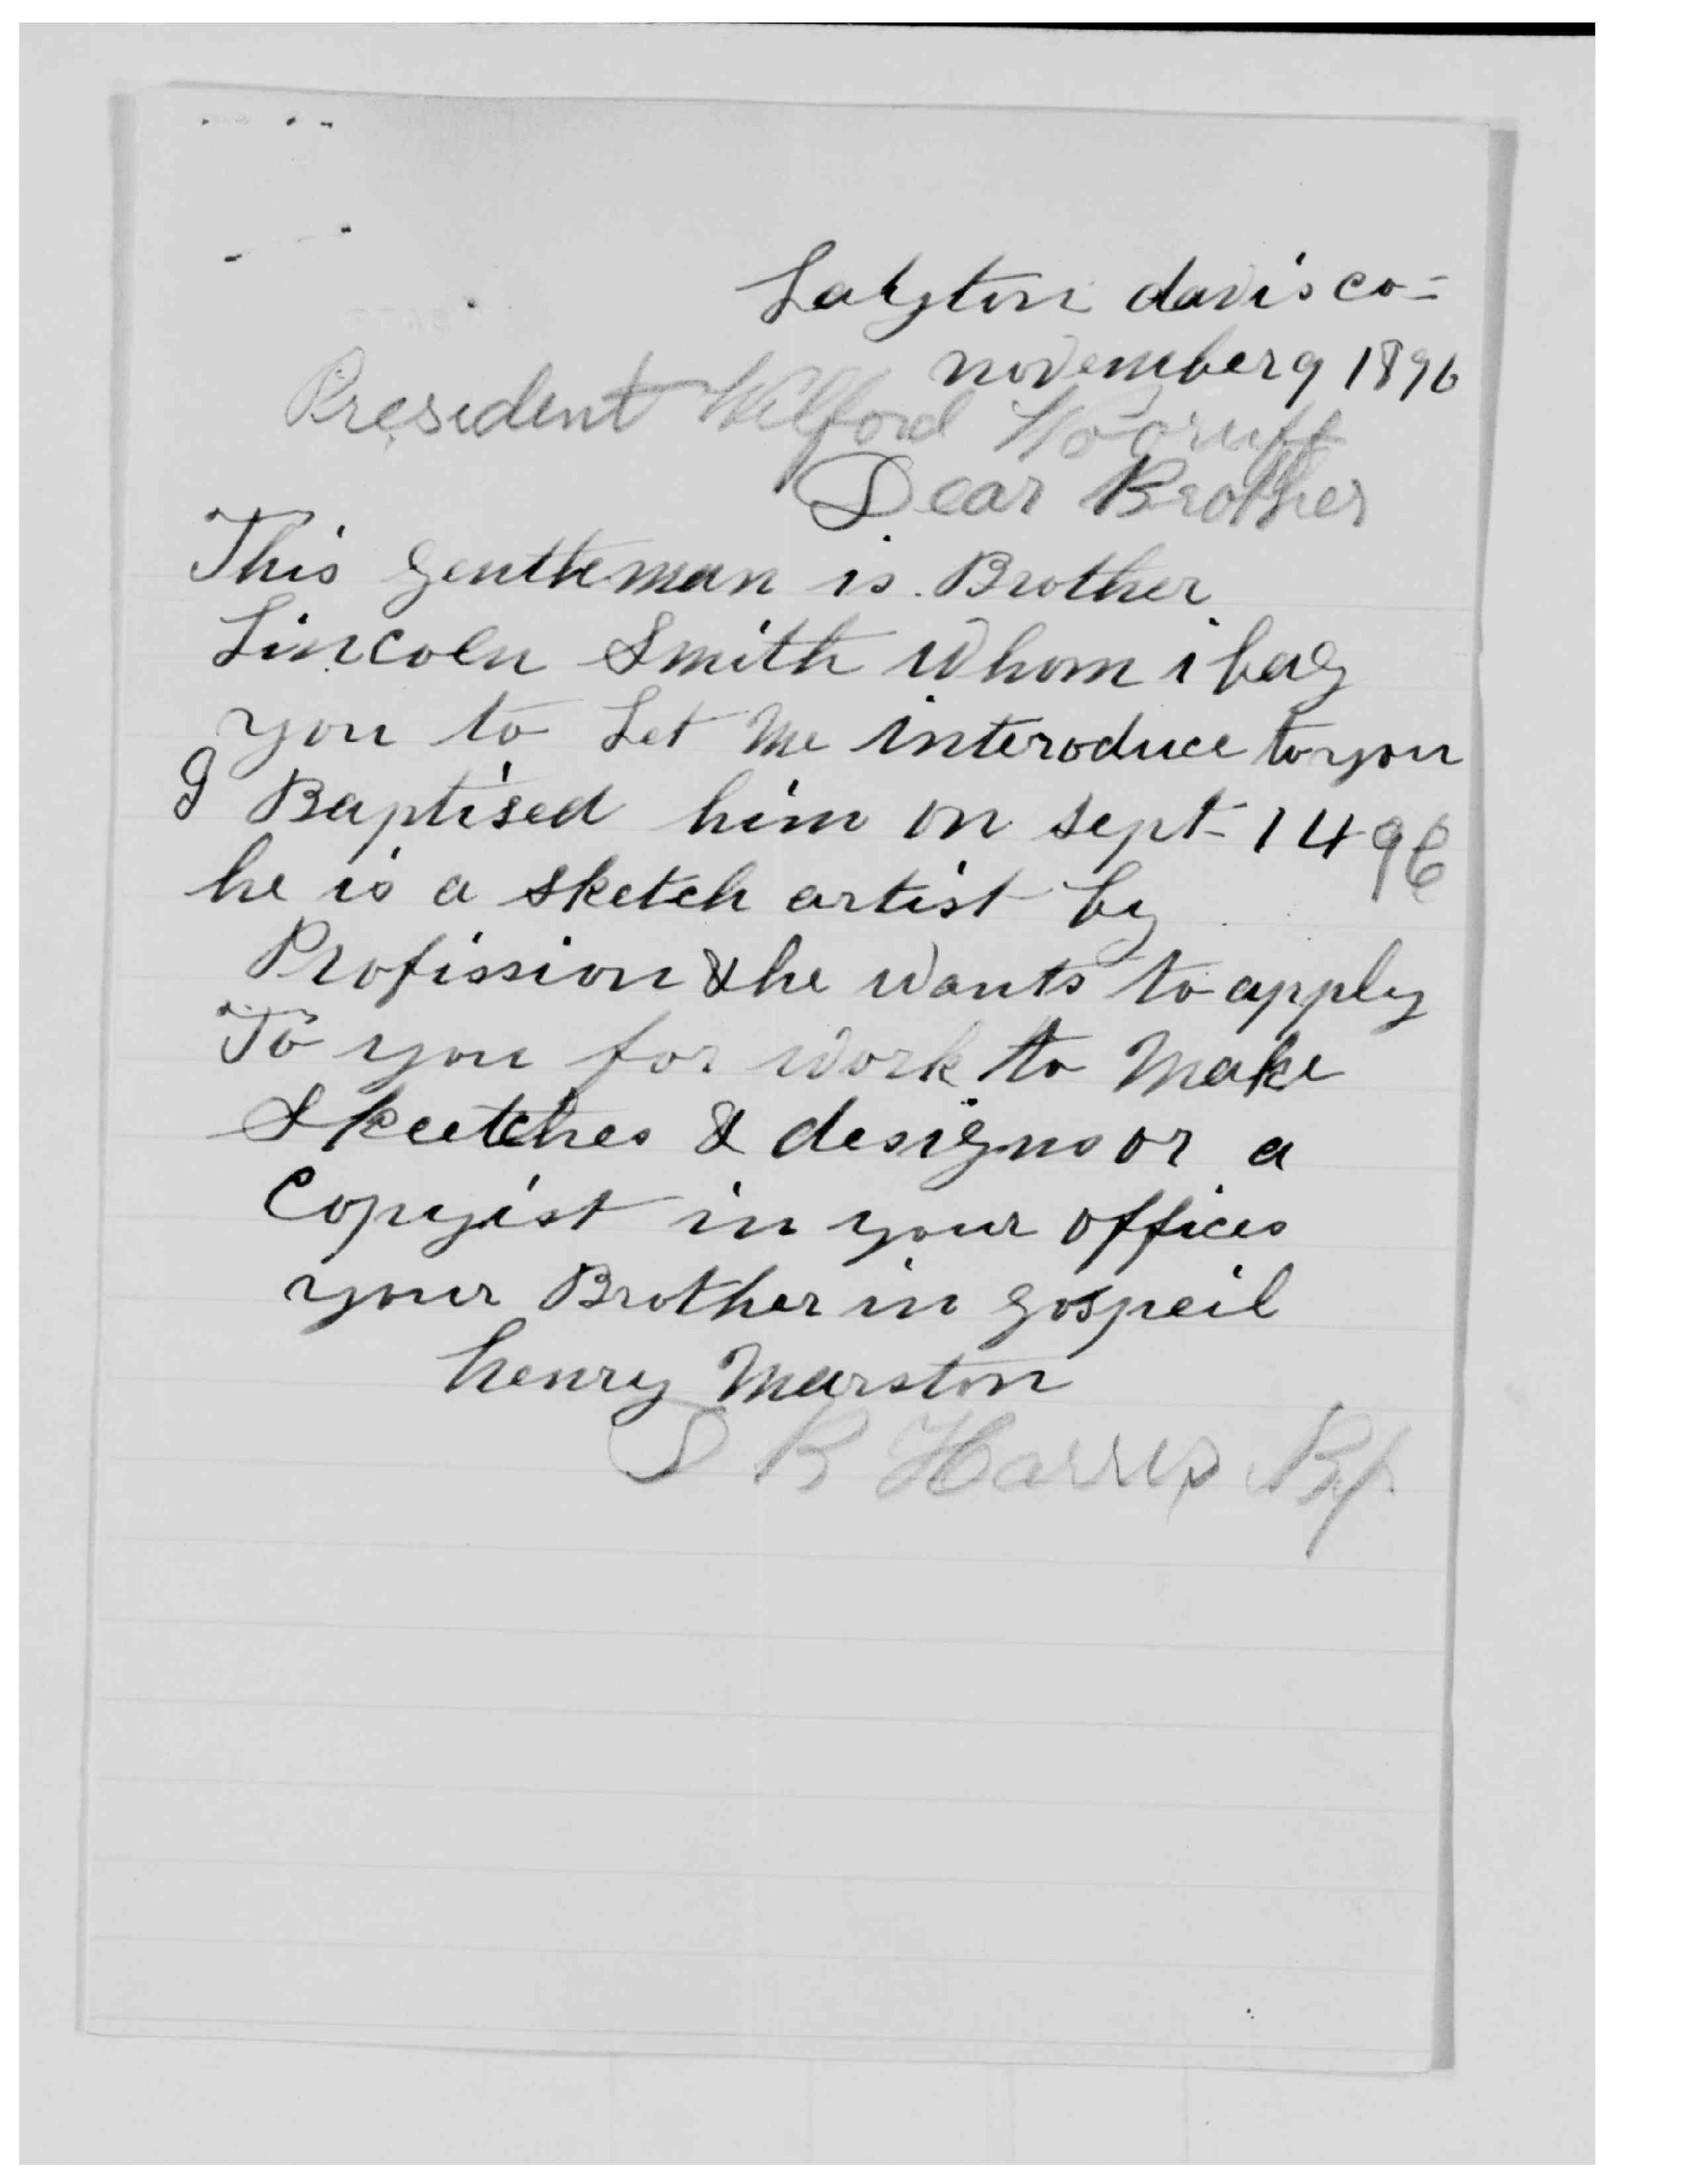 Lahyton davis co=
november 9 1896
President Wilford Wooruff
Dear Brother
This gentleman is Brother
Lincoln Smith whom i beg
you to Let Me interoduce to you
I Baptised him on sept 14 96
he is a sketch artist by
Profission & he wants to apply
To you for work to Make
Skeetches & designs or a
Copyist in your offices
your Brother in gospeil
henry Marston
D B Harris Bp.